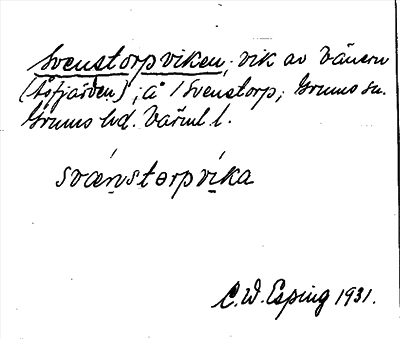 Svenstorpviken, vik av Vänern
(Åsfjärden), å /Svenstorp, Grums sn.
Grums hd. Värml l.
sváenstorpvíka
C. W. Esping 1931.